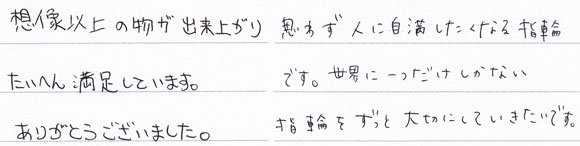 想像以上の物が出来上がり
たいへん満足しています。
ありがとうございました。
思わず人に自満したくなる指輪
です。世界に一つだけしかない
指輪をずっと大切にしていきたいです。